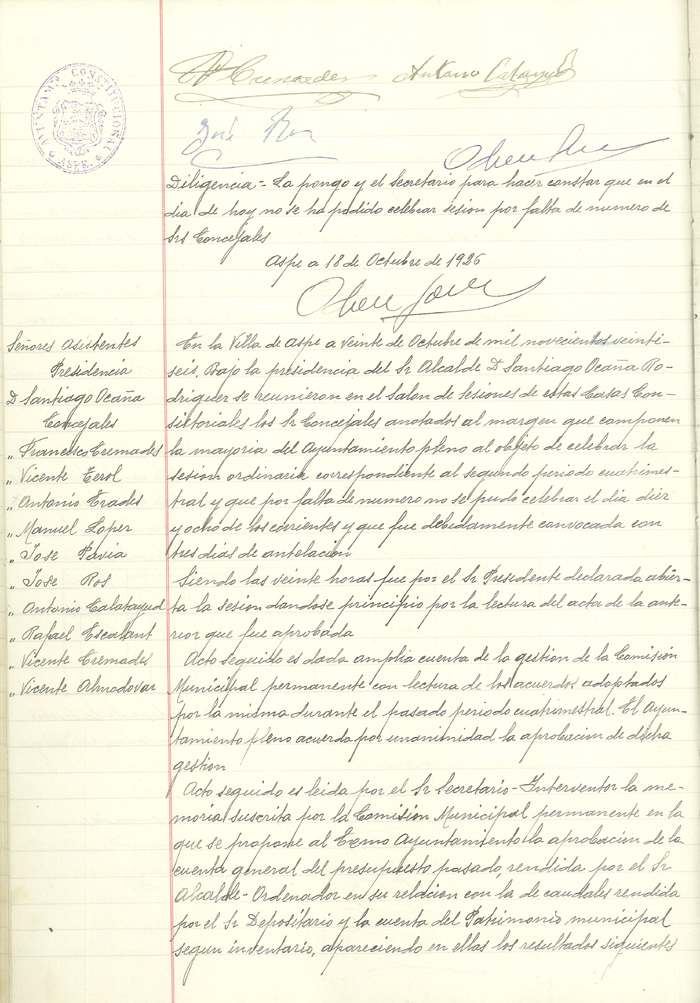 AYUNTAMº CONSTITUCIONAL
ASPE.
Antonio Calatayud
José Ros
Diligencia = La pongo yo el Secretario para hacer constar que en el
dia de hoy no se ha podido celebrar sesion por falta de numero de
Srs Concejales
Aspe a 18 de Octubre de 1926
Señores Asistentes
Presidencia
D Santiago Ocaña
Concejales
" Francisco Cremades
" Vicente Cerol
" Antonio Prades
" Manuel Lopez
" Jose Pavia
" Jose Ros
" Antonio Calatayud
" Rafael Escolant
" Vicente Cremades
" Vicente Almodovar
En la Villa de Aspe a veinte de Octubre de mil novecientos veinti-
seis, Bajo la presidencia del Sr Alcalde D Santiago Ocaña Ro-
driguez se reunieron en el Salon de Sesiones de estas Casas Con-
sistoriales los Sr Concejales anotados al margen que componen
la mayoria del Ayuntamiento pleno al objeto de celebrar la
sesion ordinaria correspondiente al segundo periodo cuatrimes-
tral y que por falta de numero no se pudo celebrar el dia diez
y ocho de los corrientes y que fue debidamente convocada con
tres dias de antelacion
Siendo las veinte horas fue por el Sr Presidente declarada abier-
ta la sesion dandose principio por la lectura del acta de la ante-
rior que fue aprobada
Acto seguido es dada amplia cuenta de la gestion de la Comisión
Municipal permanente con lectura de los acuerdos adoptados
por la misma durante el pasado periodo cuatrimestral. El Ayun-
tamiento pleno acuerda por unanimidad la aprobacion de dicha
gestion
Acto seguido es leida por el Sr Secretario-Interventor la me-
moria suscrita por la Comisión Municipal permanente en la
que se propone al Excmo Ayuntamiento la aprobacion de la
cuenta general del presupuesto pasado, rendida por el Sr
Alcalde-Ordenador en su relacion con la de caudales rendida
por el Sr Depositario y la cuenta del Patrimonio municipal
segun inventario, apareciendo en ellas los resultados siguientes